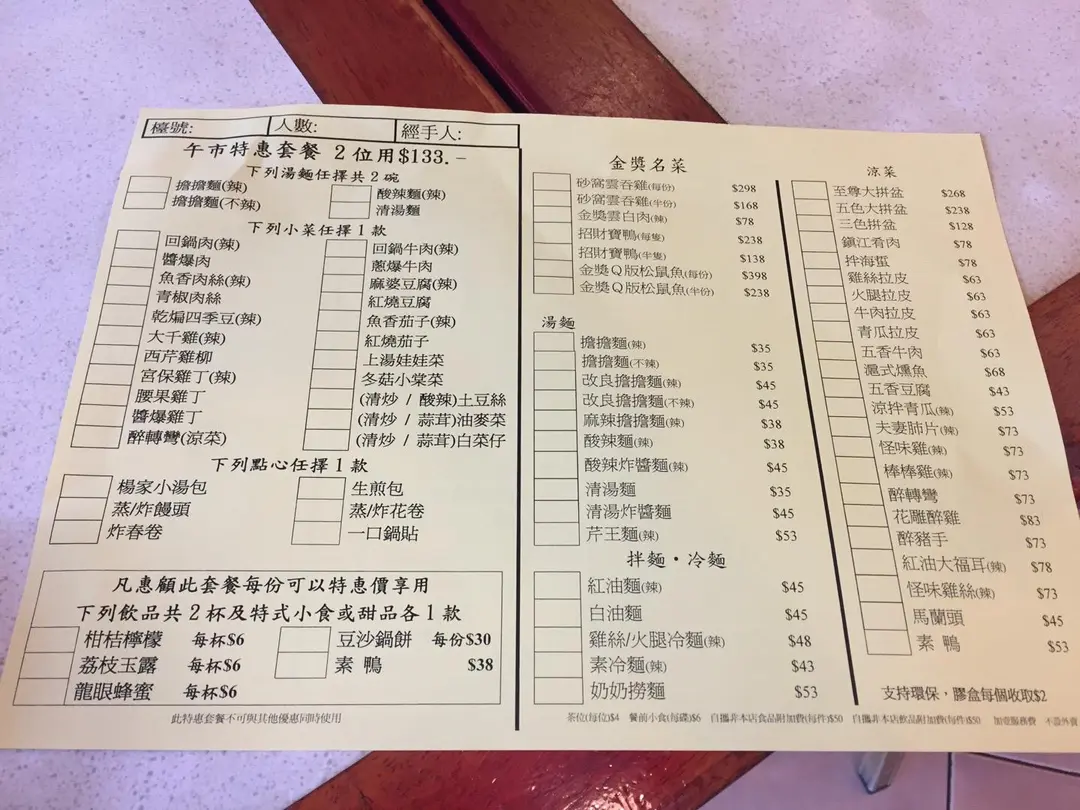 檯號: 人數: 經手人:
午市特惠套餐 2位用$133.-
下列湯麵任擇共2碗
擔擔麵(辣) 酸辣麵(辣)
擔擔麵(不辣) 清湯麵
下列小菜任擇1款
回鍋肉(辣) 回鍋牛肉(辣)
醬爆肉 蔥爆牛肉
魚香肉絲(辣) 麻婆豆腐(辣)
青椒肉絲 紅燒豆腐
乾煸四季豆(辣) 魚香茄子(辣)
大千雞(辣) 紅燒茄子
西芹雞柳 上湯娃娃菜
宮保雞丁(辣) 冬菇小棠菜
腰果雞丁 (清炒 / 酸辣)土豆絲
醬爆雞丁 (清炒 / 蒜茸)油麥菜
醉轉彎(涼菜) (清炒 / 蒜茸)白菜仔
下列點心任擇1款
楊家小湯包 生煎包
蒸/炸饅頭 蒸/炸花卷
炸春卷 一口鍋貼
凡惠顧此套餐每份可以特惠價享用
下列飲品共2杯及特式小食或甜品各1款
柑桔檸檬 每杯$6 豆沙鍋餅 每份$30
荔枝玉露 每杯$6 素鴨 $38
龍眼蜂蜜 每杯$6
此特惠套餐不可與其他優惠同時使用
金獎名菜
砂窩雲吞雞(每份) $298
砂窩雲吞雞(半份) $168
金獎雲白肉(辣) $78
招財寶鴨(每隻) $238
招財寶鴨(半隻) $138
金獎Q版松鼠魚(每份) $398
金獎Q版松鼠魚(半份) $238
湯麵
擔擔麵(辣) $35
擔擔麵(不辣) $35
改良擔擔麵(辣) $45
改良擔擔麵(不辣) $45
麻辣擔擔麵(辣) $38
酸辣麵(辣) $38
酸辣炸醬麵(辣) $45
清湯麵 $35
清湯炸醬麵 $45
芹王麵(辣) $53
拌麵·冷麵
紅油麵(辣) $45
白油麵 $45
雞絲/火腿冷麵(辣) $48
素冷麵(辣) $43
奶奶撈麵 $53
涼菜
至尊大拼盆 $268
五色大拼盆 $238
三色拼盆 $128
鎮江肴肉 $78
拌海蜇 $78
雞絲拉皮 $63
火腿拉皮 $63
牛肉拉皮 $63
青瓜拉皮 $63
五香牛肉 $63
滬式燻魚 $68
五香豆腐 $43
涼拌青瓜(辣) $53
夫妻肺片(辣) $73
怪味雞(辣) $73
棒棒雞(辣) $73
醉轉彎 $73
花雕醉雞 $83
醉豬手 $73
紅油大福耳(辣) $78
怪味雞絲(辣) $73
馬蘭頭 $45
素鴨 $53
支持環保，膠盒每個收取$2
茶位(每位)$4 餐前小食(每碟)$6 自攜非本店食品附加費(每件)$50 自攜非本店飲品附加費(每件)$50 加壹服務費 不設外賣